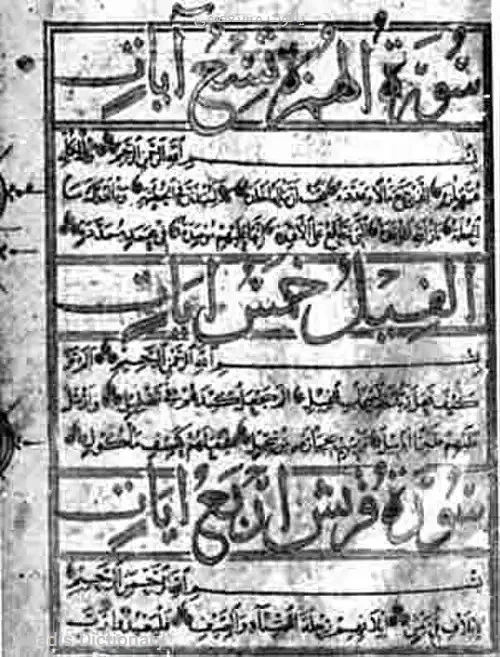 سورة الهمزة تسع آيات
بسم الله الرحمن الرحيم ويل لكل
همزة لمزة الذي جمع مالا وعدده يحسب أن ماله أخلده كلا لينبذن في الحطمة وما أدراك ما
الحطمة نار الله الموقدة التي تطلع على الأفئدة إنها عليهم مؤصدة في عمد ممددة
الفيل خمس ايات
بسم الله الرحمن الرحيم الم تر
كيف فعل ربك بأصحاب الفيل الم يجعل كيدهم في تضليل وارسل
عليهم طيرا ابابيل ترميهم بحجارة من سجيل فجعلهم كعصف مأكول
سورة قريش اربع ايات
بسم الله الرحمن الرحيم
لايلاف قريش ايلافهم رحلة الشتاء والصيف فليعبدوا رب